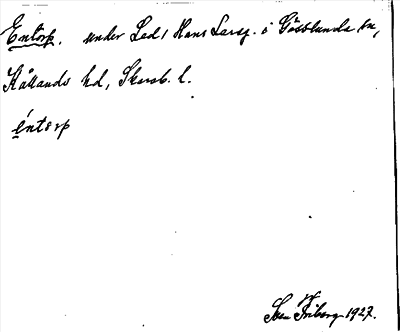 Entorp. under Led 1 Hans Larsg. i Gösslunda sn,
Kållands hd, Skarab. l.
éntorp
Sven Friberg 1927.